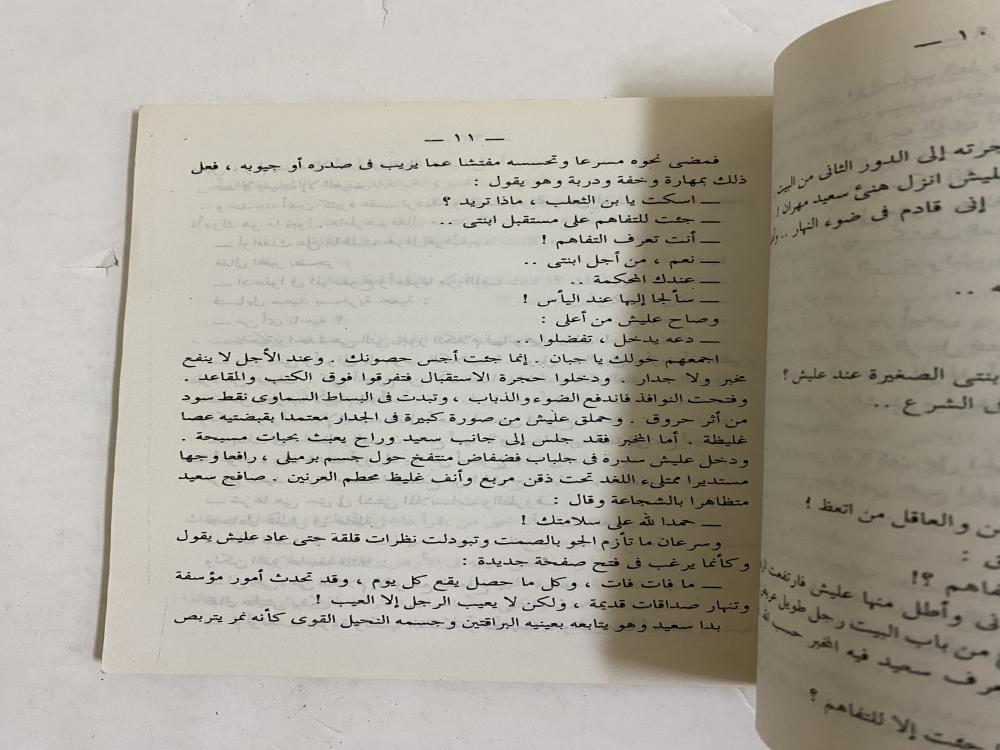 — ١١ —
فمضى نحوه مسرعا وتحسسه مفتشا عما يريب فى صدره أو جيوبه ، فعل
ذلك بمهارة وخفة ودربة وهو يقول :
— اسكت يا بن الثعلب ، ماذا تريد ؟
— جئت للتفاهم على مستقبل ابنتى ..
— أنت تعرف التفاهم !
— نعم ، من أجل ابنتى ..
— عندك المحكمة ..
— سألجا إليها عند اليأس !
وصاح عليش من أعلى :
— دعه يدخل ، تفضلوا ..
اجمعهم حولك يا جبان . إنما جئت أجس حصونك . وعند الأجل لا ينفع
مخبر ولا جدار . ودخلوا حجرة الاستقبال فتفرقوا فوق الكنب والمقاعد .
وفتحت النوافذ فاندفع الضوء والذباب ، وتبدت فى البساط السماوى نقط سود
من أثر حروق . وحملق عليش من صورة كبيرة فى الجدار معتمدا بقبضتيه عصا
غليظة . أما المخبر فقد جلس إلى جانب سعيد وراح يعبث بحبات مسبحة .
ودخل عليش سدرة فى جلباب فضفاض منتفخ حول جسم برميلى ، رافعا وجها
مستديرا ممتلىء اللغد تحت ذقن مربع وأنف غليظ محطم العرنين . صافح سعيد
متظاهرا بالشجاعة وقال :
— حمدا لله على سلامتك !
وسرعان ما تأزم الجو بالصمت وتبودلت نظرات قلقة حتى عاد عليش يقول
وكأنما يرغب فى فتح صفحة جديدة :
— ما فات فات ، وكل ما حصل يقع كل يوم ، وقد تحدث أمور مؤسفة
وتنهار صداقات قديمة ، ولكن لا يعيب الرجل إلا العيب !
بدا سعيد وهو يتابعه بعينيه البراقتين وجسمه النحيل القوى كأنه نمر يتربص
١٠ —
إلى الدور الثانى من البيت
انزل هنئ سعيد مهران !
إنى قادم فى ضوء النهار ..
..
الصغيرة عند عليش ؟
الشرع ..
والعاقل من اتعظ !
:
؟!
وأطل منها عليش فارتفعت
من باب البيت رجل طويل
سعيد فيه المخبر حسب
جئت إلا للتفاهم ؟